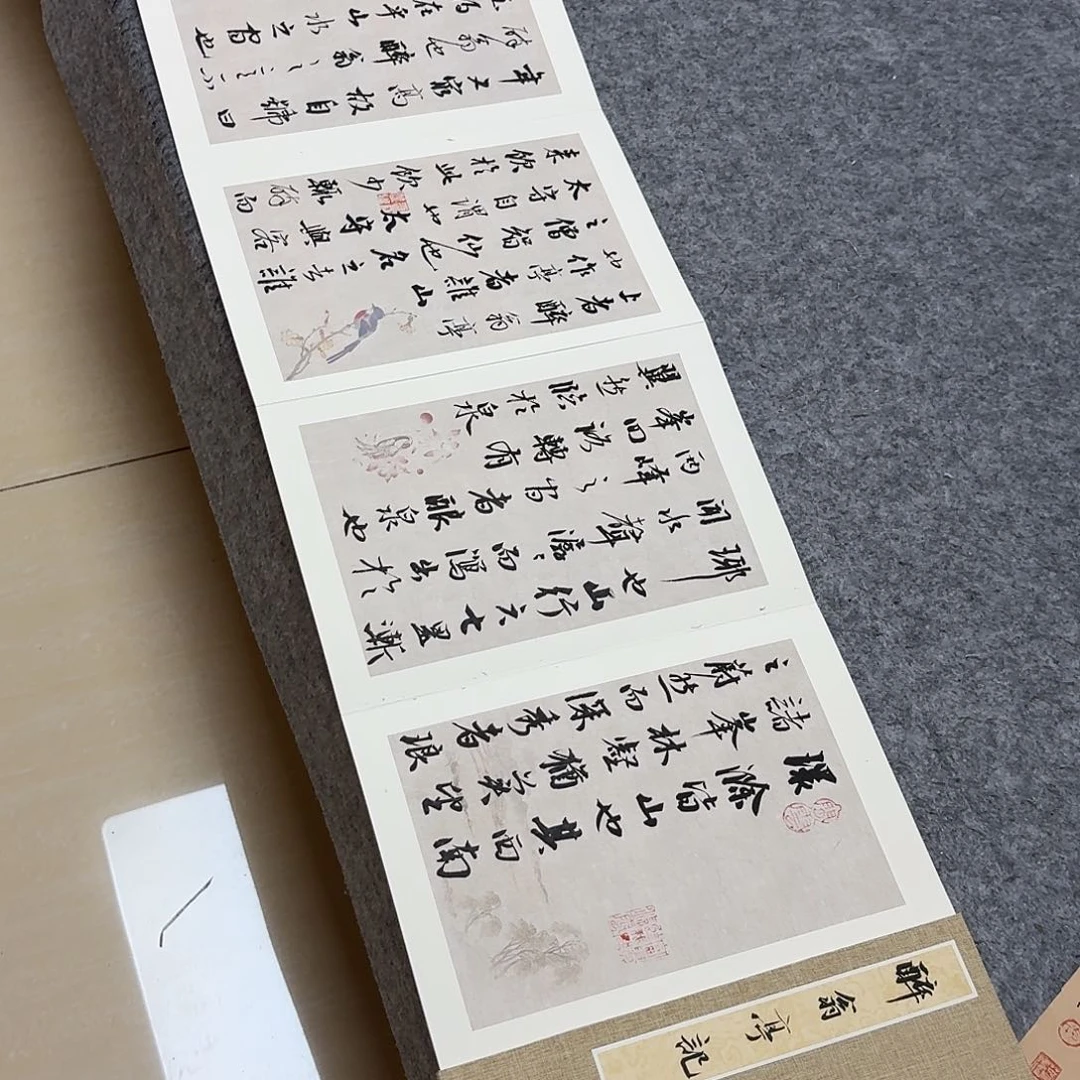 醉翁亭記
環滁皆山也其西南
諸峯林壑猶美望
之蔚然而深秀者琅
琊也山行六七里漸
聞水聲潺々而瀉出於
兩峰之間者釀泉也
峯回路轉有
翼然臨於泉
上者醉翁亭
也作亭者誰山
之僧智仙也名之者誰
太守自謂也太守與客
來飲於此飲少輒醉而
年又最高故自號曰
醉翁也醉翁之意不
在乎山水之間也